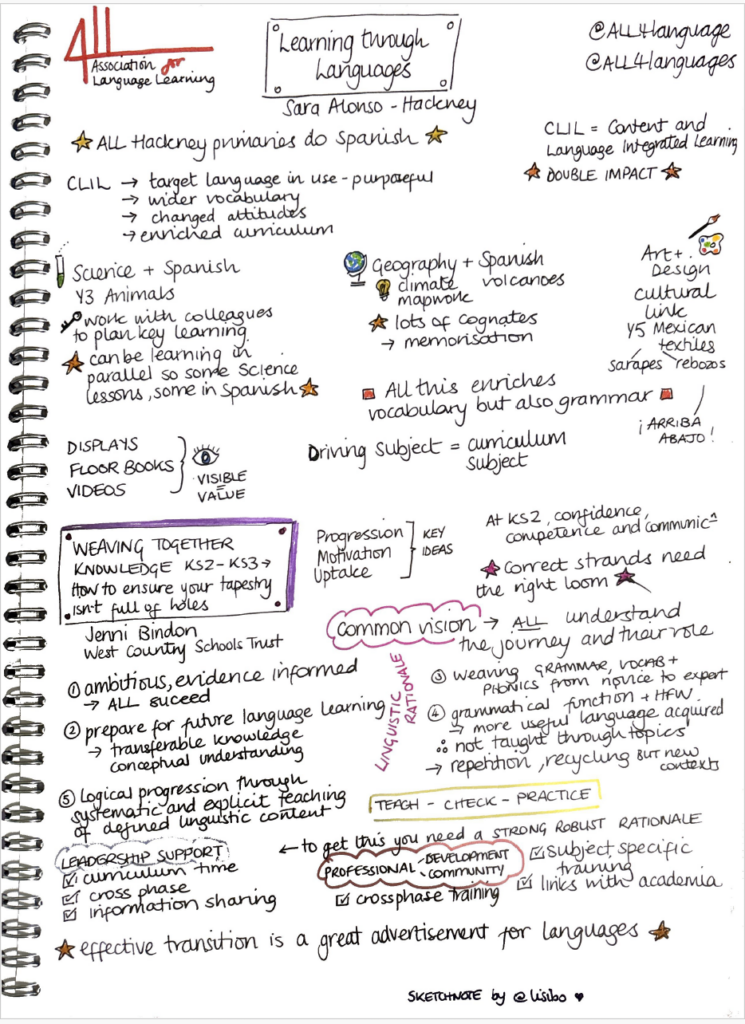 ALL
Association for
Language Learning
Learning through
Languages
Sara Alonso - Hackney
@ALL4language
@ALL4languages
ALL Hackney primaries do Spanish
CLIL = Content and
Language Integrated Learning
DOUBLE IMPACT
CLIL → target language in use - purposeful
→ wider vocabulary
→ changed attitudes
→ enriched curriculum
Science + Spanish
Y3 Animals
work with colleagues
to plan key learning
can be learning in
parallel so some Science
lessons, some in Spanish
Geography + Spanish
climate volcanoes
mapwork
lots of cognates
→ memorisation
Art +
Design
cultural
link
Y5 Mexican
textiles
sarapes rebozos
¡ARRIBA
ABAJO!
All this enriches
vocabulary but also grammar
DISPLAYS
FLOOR BOOKS
VIDEOS
VISIBLE
VALUE
Driving Subject = curriculum
subject
WEAVING TOGETHER
KNOWLEDGE KS2-KS3 →
How to ensure your tapestry
isn't full of holes
Jenni Bindon
West Country Schools Trust
Progression
Motivation
Uptake
KEY
IDEAS
At KS2, confidence,
competence and communicⁿ
Correct strands need
the right loom
common vision → ALL understand
the journey and their role
LINGUISTIC
RATIONALE
① ambitious, evidence informed
→ ALL suceed
② prepare for future language learning
→ transferable knowledge
conceptual understanding
③ weaving GRAMMAR, VOCAB +
PHONICS from novice to expert
④ grammatical function + HFW
→ more useful language acquired
∴ not taught through topics
→ repetition, recycling BUT new
contexts
⑤ Logical progression through
systematic and explicit teaching
of defined linguistic content
TEACH - CHECK - PRACTICE
← to get this you need a STRONG ROBUST RATIONALE
LEADERSHIP SUPPORT
☑ curriculum time
☑ cross phase
☑ information sharing
PROFESSIONAL - DEVELOPMENT
COMMUNITY
☑ crossphase training
☑ Subject specific
training
☑ links with academia
effective transition is a great advertisement for languages
SKETCHNOTE by @lisibo ♥